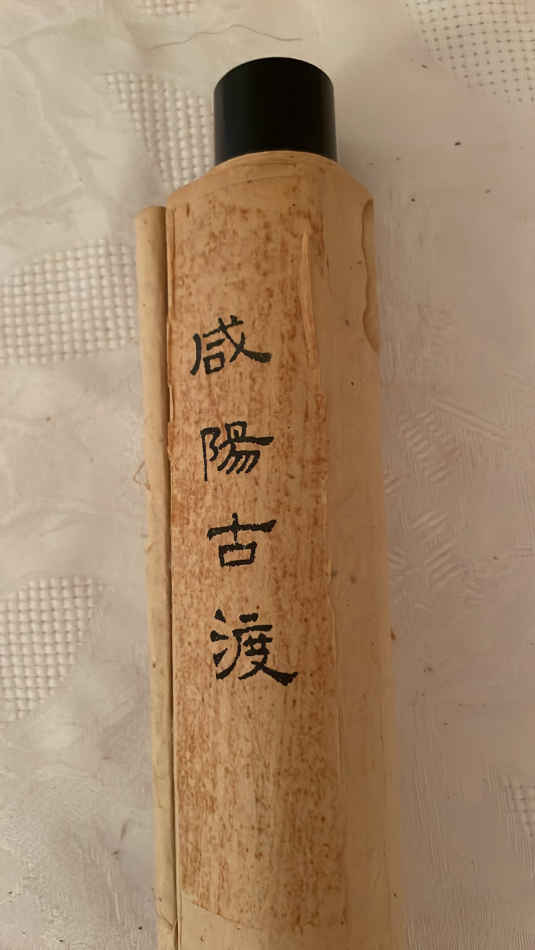 咸陽古渡